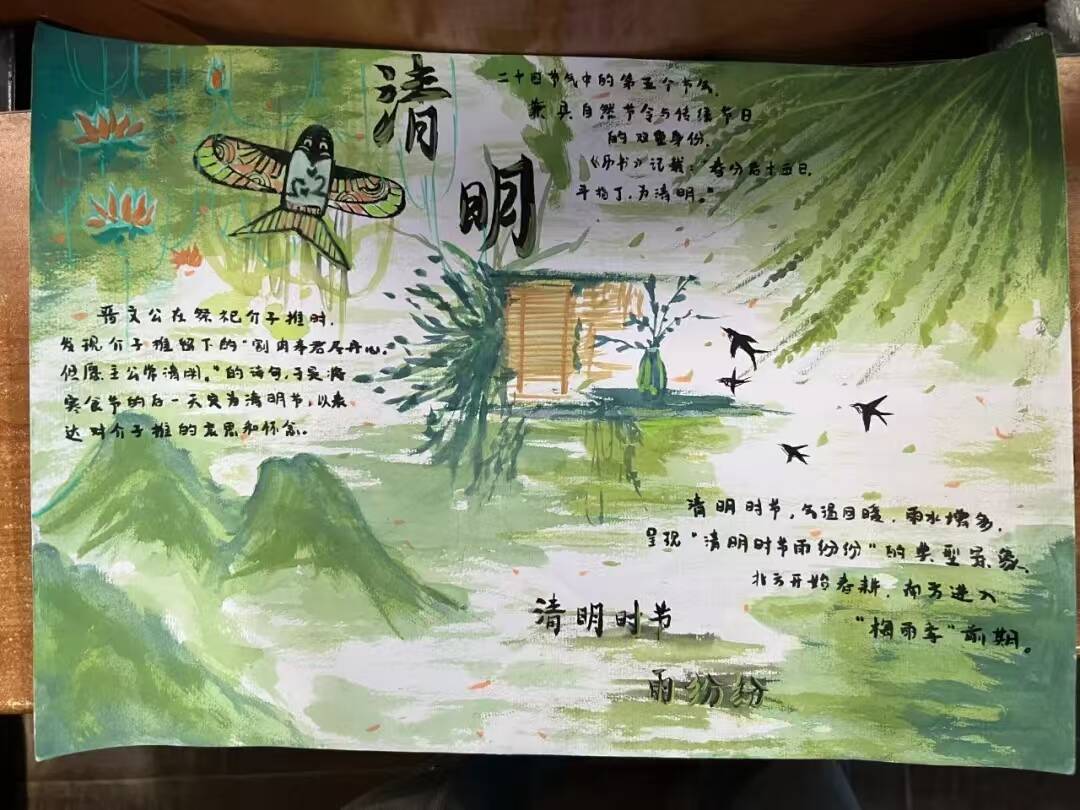 清明
二十四节气中的第五个节气,
兼具自然节令与传统节日
的双重身份.
《历书》记载:“春分后十五日,
斗指丁,为清明。”
晋文公在祭祀介子推时,
发现介子推留下的“割肉奉君尽丹心,
但愿主公常清明。”的诗句,于是将
寒食节的后一天定为清明节,以表
达对介子推的哀思和怀念。
清明时节,气温回暖,雨水增多,
呈现“清明时节雨纷纷”的典型景象、
北方开始春耕,南方进入
“梅雨季”前期。
清明时节
雨纷纷